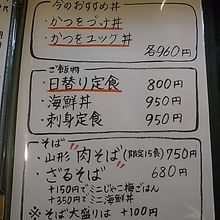 今のおすすめ丼
・かつをづけ丼
・かつをユッケ丼
各960円
ご飯物
・日替り定食 800円
・海鮮丼 950円
・刺身定食 950円
そば
・山形肉そば(限定15食)750円
・ざるそば 680円
+150円でミニじゃこ梅ごはん
+350円でミニ海鮮丼
※そば大盛りは +100円